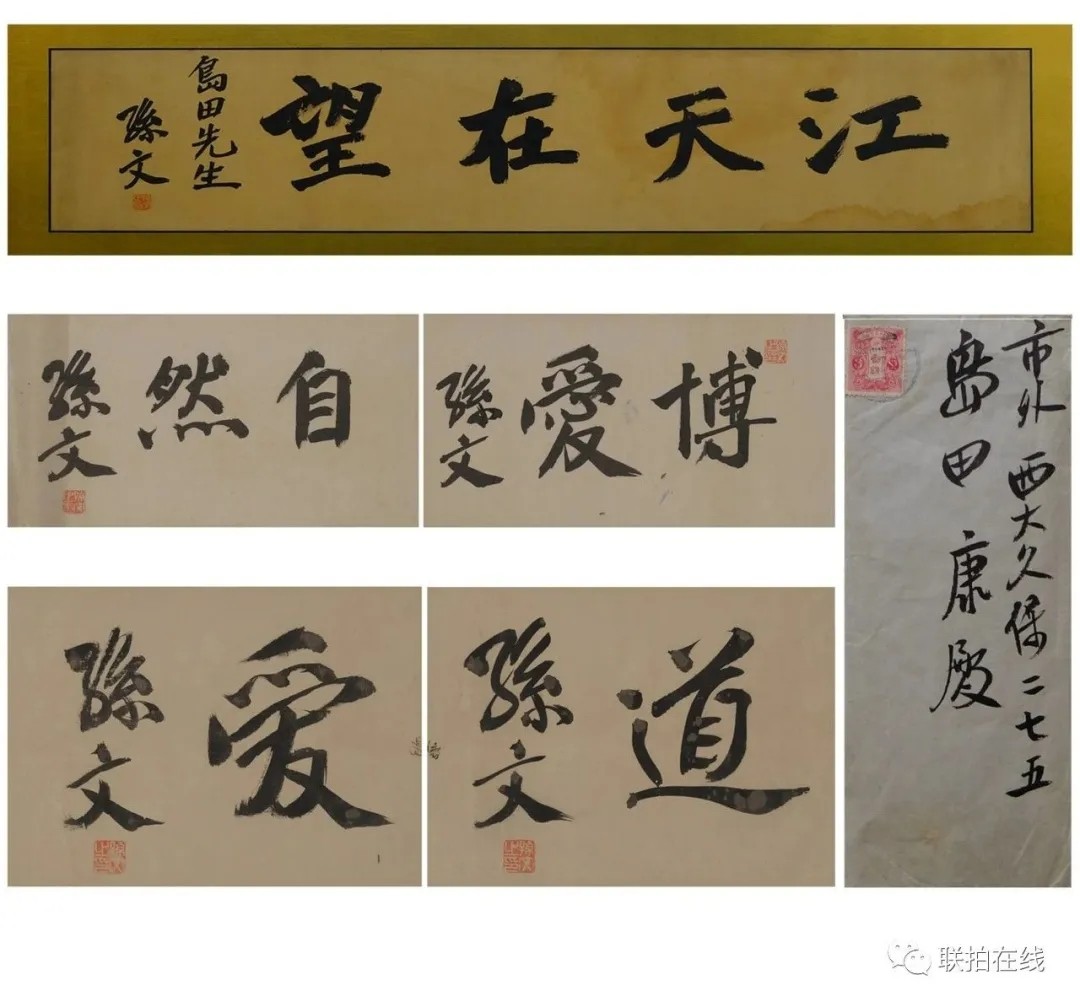 江天在望
島田先生
孫文
博愛
孫文
自然
孫文
道
孫文
愛
孫文
市外 西大久保二七五
島田 康殿
联拍在线